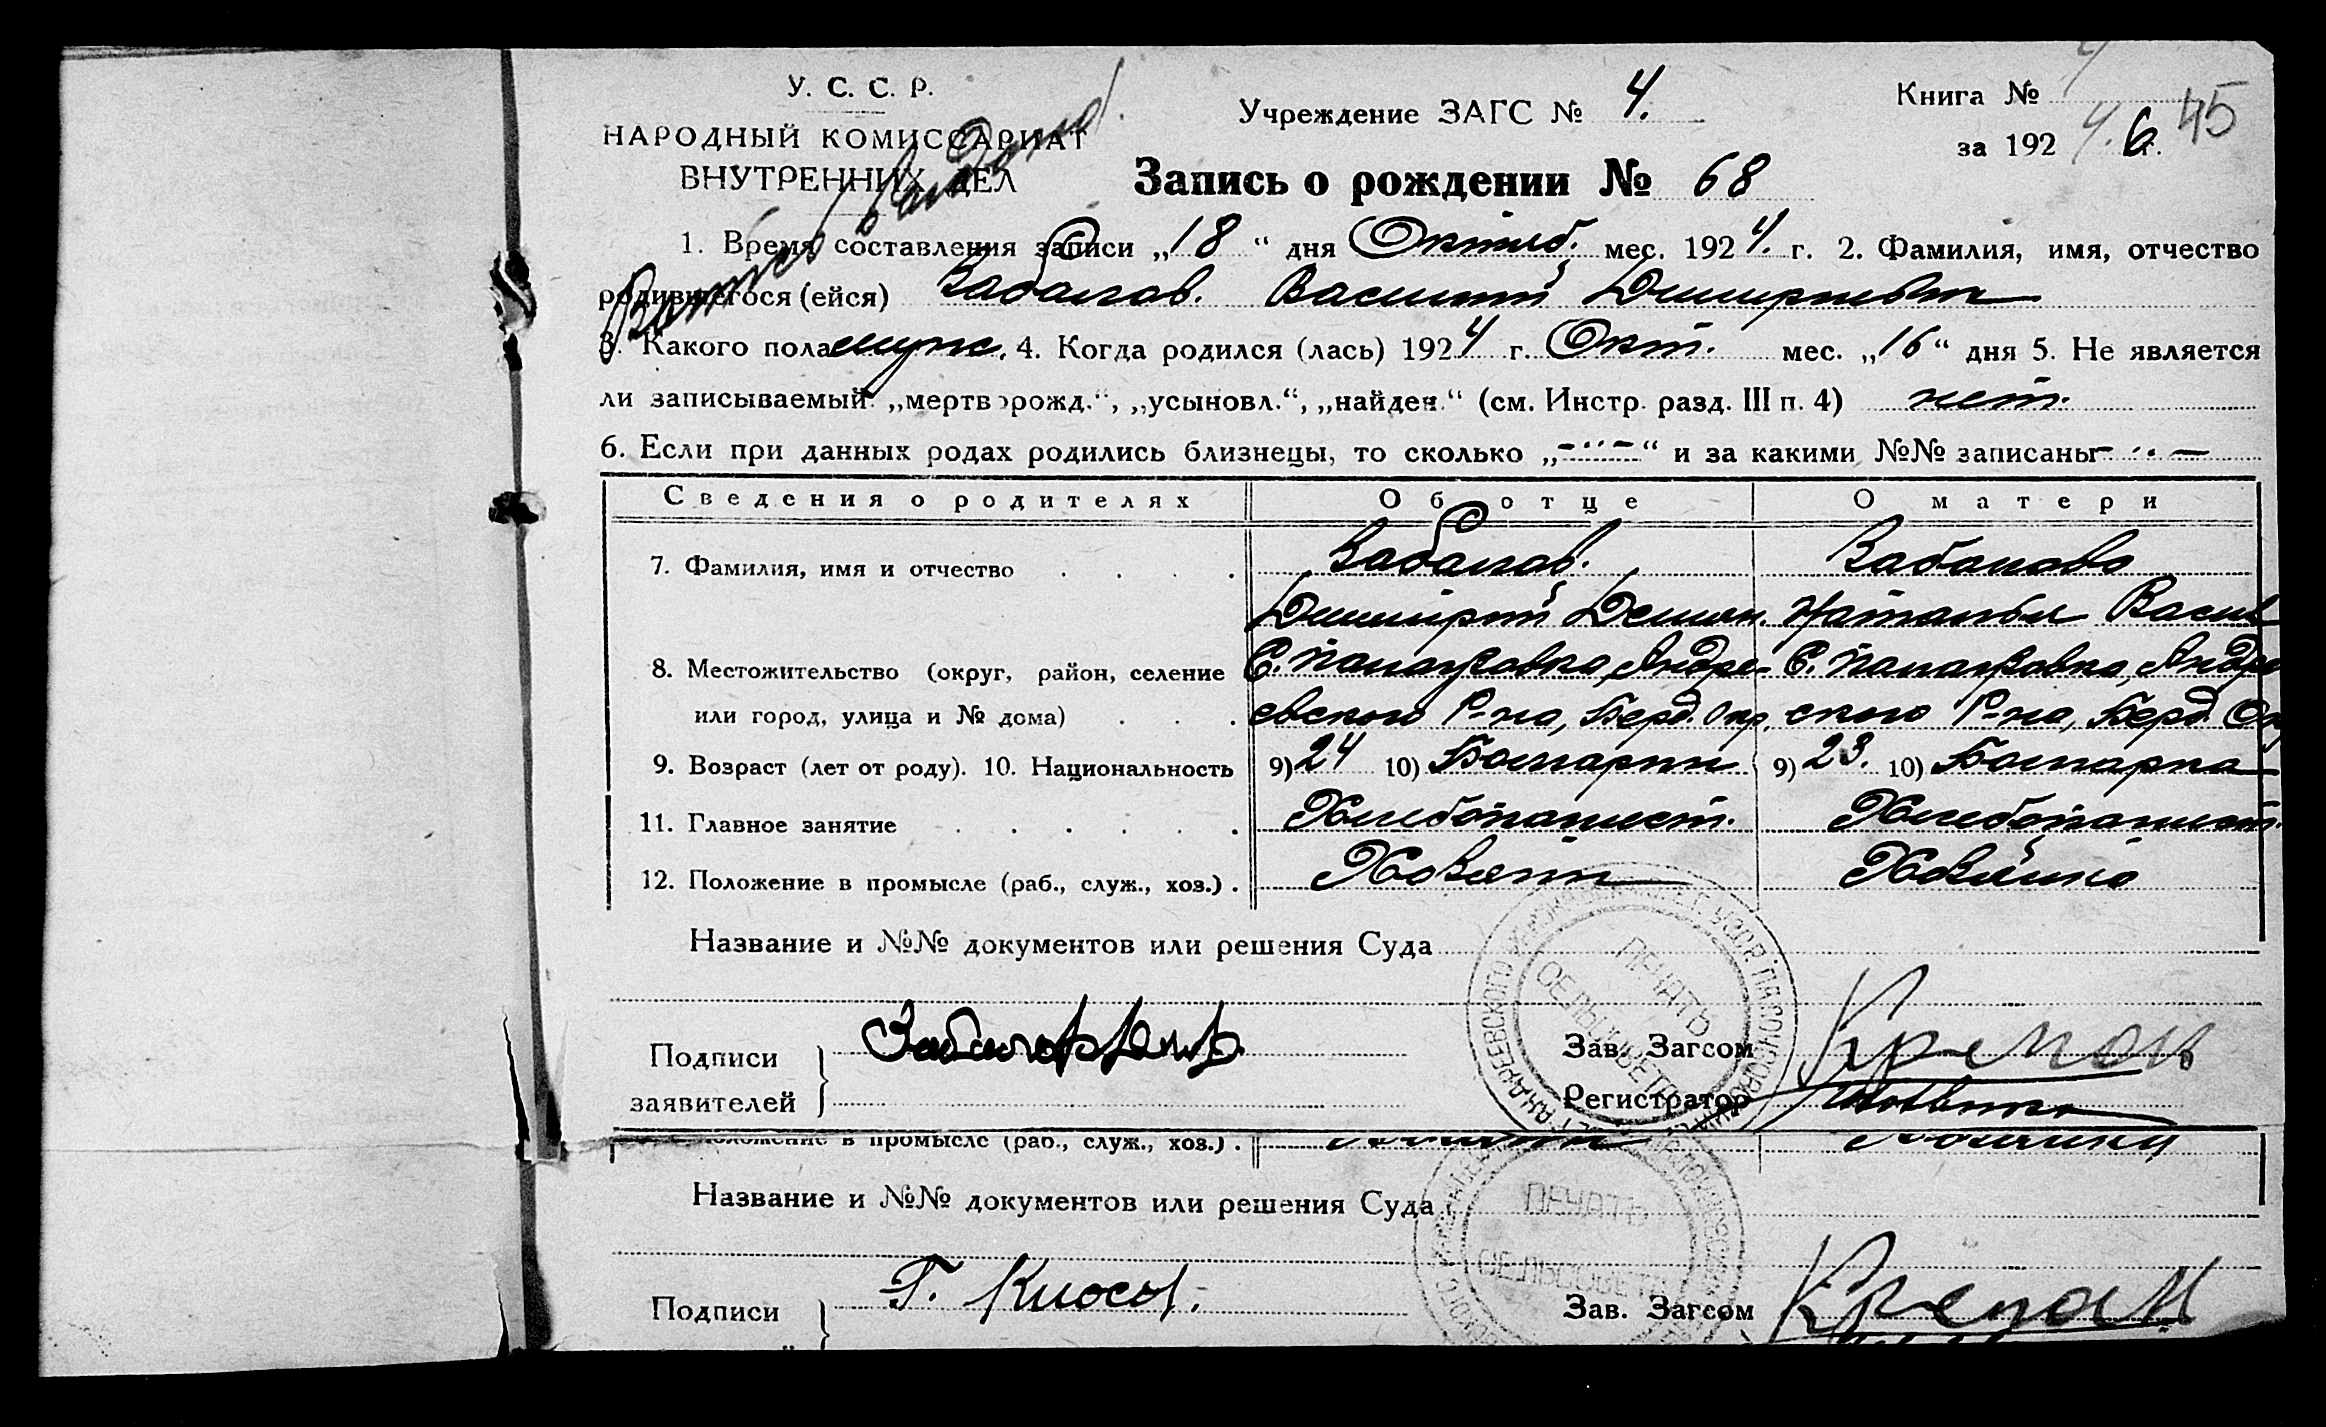 У. С. С. Р.
НАРОДНЫЙ КОМИССАРИАТ
ВНУТРЕННИХ ДЕЛ
Учреждение ЗАГС № 4.
Книга №
за 192 6 г. 45
Запись о рождении № 68
1. Время составления записи „18“ дня Октяб. мес. 1924. г. 2. Фамилия, имя, отчество
родившегося (ейся) Забалов. Василий Димитриевич
3. Какого пола мужс. 4. Когда родился (лась) 1924 г. Окт. мес. „16“ дня 5. Не является
ли записываемый: „мертворожд.“, „усыновл.“, „найден.“ (см. Инстр. разд. III п. 4) нет.
6. Если при данных родах родились близнецы, то сколько „-"-“ и за какими №№ записаны -"-
Сведения о родителях Об отце О матери
7. Фамилия, имя и отчество . . . . Забалов. Забалова
Димитрий Демян. Наталья Васил
8. Местожительство (округ, район, селение С. Палаузовка, Андре- С. Палаузовка, Андре
или город, улица и № дома) . . . евского Р-на, Берд. Окр. ского Р-на, Берд. Ок
9. Возраст (лет от роду). 10. Национальность 9) 24 10) Болгарин 9) 23. 10) Болгарка
11. Главное занятие . . . . . . Хлебопашест. Хлебопашест.
12. Положение в промысле (раб., служ., хоз.) . Хозяин Хозяйка
Название и №№ документов или решения Суда
ПЕЧАТЬ
СЕЛЬСОВЕТА
Подписи
заявителей
Зав. Загсом
Регистратор
Положение в промысле (раб., служ., хоз.) .
Название и №№ документов или решения Суда
ПЕЧАТЬ
СЕЛЬСОВЕТА
Подписи Г. Клосы.
Зав. Загсом